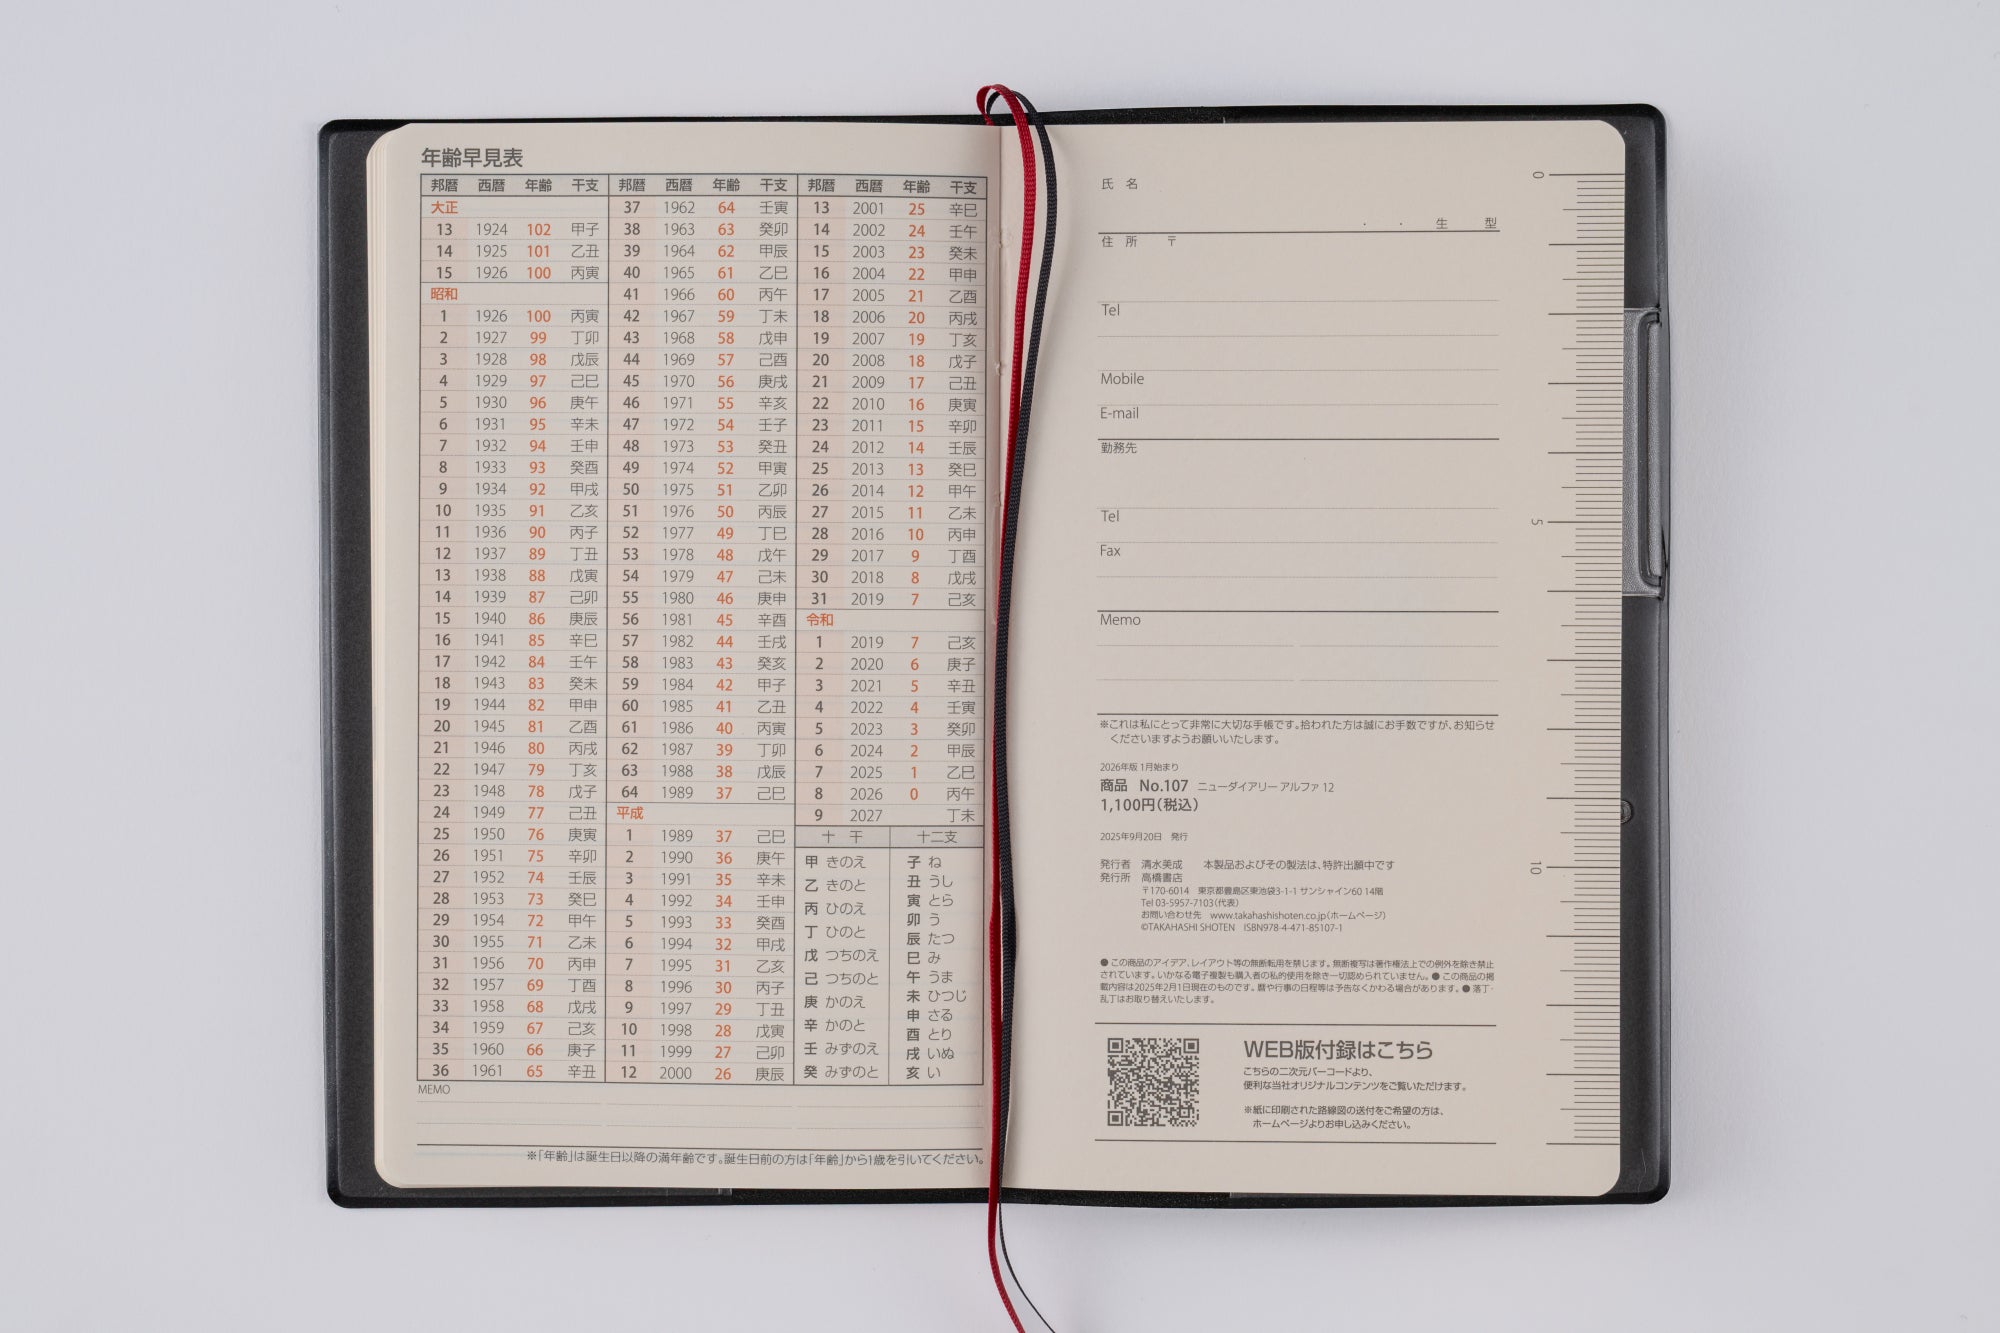 年齢早見表
邦暦 西暦 年齢 干支
大正
13 1924 102 甲子
14 1925 101 乙丑
15 1926 100 丙寅
昭和
1 1926 100 丙寅
2 1927 99 丁卯
3 1928 98 戊辰
4 1929 97 己巳
5 1930 96 庚午
6 1931 95 辛未
7 1932 94 壬申
8 1933 93 癸酉
9 1934 92 甲戌
10 1935 91 乙亥
11 1936 90 丙子
12 1937 89 丁丑
13 1938 88 戊寅
14 1939 87 己卯
15 1940 86 庚辰
16 1941 85 辛巳
17 1942 84 壬午
18 1943 83 癸未
19 1944 82 甲申
20 1945 81 乙酉
21 1946 80 丙戌
22 1947 79 丁亥
23 1948 78 戊子
24 1949 77 己丑
25 1950 76 庚寅
26 1951 75 辛卯
27 1952 74 壬辰
28 1953 73 癸巳
29 1954 72 甲午
30 1955 71 乙未
31 1956 70 丙申
32 1957 69 丁酉
33 1958 68 戊戌
34 1959 67 己亥
35 1960 66 庚子
36 1961 65 辛丑
邦暦 西暦 年齢 干支
37 1962 64 壬寅
38 1963 63 癸卯
39 1964 62 甲辰
40 1965 61 乙巳
41 1966 60 丙午
42 1967 59 丁未
43 1968 58 戊申
44 1969 57 己酉
45 1970 56 庚戌
46 1971 55 辛亥
47 1972 54 壬子
48 1973 53 癸丑
49 1974 52 甲寅
50 1975 51 乙卯
51 1976 50 丙辰
52 1977 49 丁巳
53 1978 48 戊午
54 1979 47 己未
55 1980 46 庚申
56 1981 45 辛酉
57 1982 44 壬戌
58 1983 43 癸亥
59 1984 42 甲子
60 1985 41 乙丑
61 1986 40 丙寅
62 1987 39 丁卯
63 1988 38 戊辰
64 1989 37 己巳
平成
1 1989 37 己巳
2 1990 36 庚午
3 1991 35 辛未
4 1992 34 壬申
5 1993 33 癸酉
6 1994 32 甲戌
7 1995 31 乙亥
8 1996 30 丙子
9 1997 29 丁丑
10 1998 28 戊寅
11 1999 27 己卯
12 2000 26 庚辰
邦暦 西暦 年齢 干支
13 2001 25 辛巳
14 2002 24 壬午
15 2003 23 癸未
16 2004 22 甲申
17 2005 21 乙酉
18 2006 20 丙戌
19 2007 19 丁亥
20 2008 18 戊子
21 2009 17 己丑
22 2010 16 庚寅
23 2011 15 辛卯
24 2012 14 壬辰
25 2013 13 癸巳
26 2014 12 甲午
27 2015 11 乙未
28 2016 10 丙申
29 2017 9 丁酉
30 2018 8 戊戌
31 2019 7 己亥
令和
1 2019 7 己亥
2 2020 6 庚子
3 2021 5 辛丑
4 2022 4 壬寅
5 2023 3 癸卯
6 2024 2 甲辰
7 2025 1 乙巳
8 2026 0 丙午
9 2027 丁未
十 干
甲 きのえ
乙 きのと
丙 ひのえ
丁 ひのと
戊 つちのえ
己 つちのと
庚 かのえ
辛 かのと
壬 みずのえ
癸 みずのと
十二支
子 ね
丑 うし
寅 とら
卯 う
辰 たつ
巳 み
午 うま
未 ひつじ
申 さる
酉 とり
戌 いぬ
亥 い
MEMO
※「年齢」は誕生日以降の満年齢です。誕生日前の方は「年齢」から1歳を引いてください。
氏 名
・ ・ 生 型
住 所 〒
Tel
Mobile
E-mail
勤務先
Tel
Fax
Memo
※これは私にとって非常に大切な手帳です。拾われた方は誠にお手数ですが、お知らせ
くださいますようお願いいたします。
2026年版 1月始まり
商品 No.107 ニューダイアリー アルファ 12
1,100円(税込)
2025年9月20日 発行
発行者 清水美成 本製品およびその製法は、特許出願中です
発行所 高橋書店
〒170-6014 東京都豊島区東池袋3-1-1 サンシャイン60 14階
Tel 03-5957-7103(代表)
お問い合わせ先 www.takahashishoten.co.jp(ホームページ)
©TAKAHASHI SHOTEN ISBN978-4-471-85107-1
● この商品のアイデア、レイアウト等の無断転用を禁じます。無断複写は著作権法上での例外を除き禁止
されています。いかなる電子複製も購入者の私的使用を除き一切認められていません。● この商品の掲
載内容は2025年2月1日現在のものです。暦や行事の日程等は予告なくかわる場合があります。● 落丁・
乱丁はお取り替えいたします。
WEB版付録はこちら
こちらの二次元バーコードより、
便利な当社オリジナルコンテンツをご覧いただけます。
※紙に印刷された路線図の送付をご希望の方は、
ホームページよりお申し込みください。
0
5
10